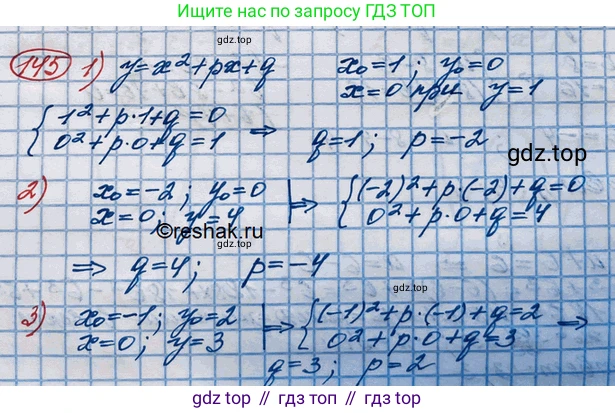 Ищите нас по запросу ГДЗ ТОП
145 1) y=x²+px+q x₀=1; y₀=0
x=0 при y=1
{1²+p·1+q=0
0²+p·0+q=1 ⇒ q=1; p=-2
gdz.top
2) x₀=-2; y₀=0 |⇒ {(-2)²+p·(-2)+q=0
x=0; y=4 0²+p·0+q=4
©reshak.ru
⇒ q=4; p=-4
3) x₀=-1; y₀=2 |⇒ {(-1)²+p·(-1)+q=2
x=0; y=3 0²+p·0+q=3 ⇒
q=3; p=2
gdz.top // гдз.топ // gdz.top